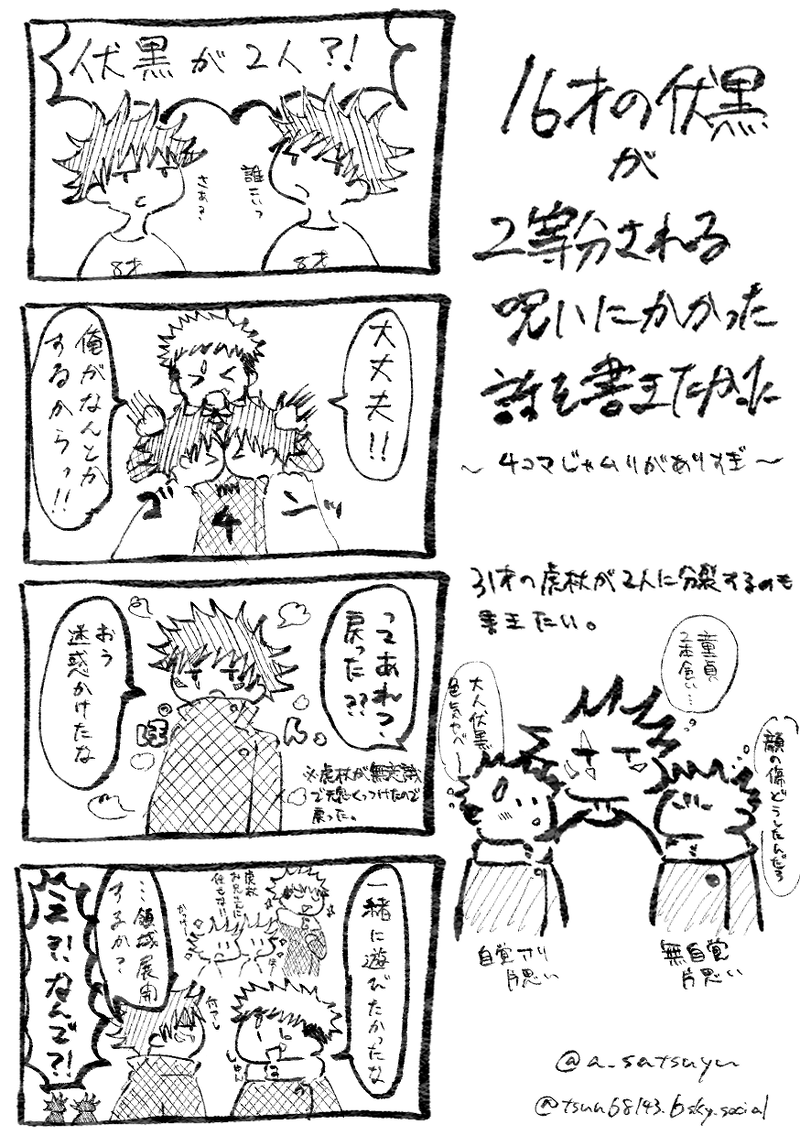 16才の伏黒
が
2等分される
呪いにかかった
話を書きたかった
～4コマじゃムリがありすぎ～
伏黒が2人?!
誰こいつ
さあな?
8才
8才
大丈夫!!
俺がなんとか
するからっ!!
ゴ
ンッ
4
ってあれ?
戻った??
おう
迷惑かけたな
ぽ
ん。
※虎杖が無意識
で頭くっつけたので
戻った。
一緒に遊びたかったな
虎杖
お兄さんに
しゅん
…領域展開
するか?
 え?!なんで?!
31才の虎杖が2人に分裂するのも
書きたい。
童貞
2本食い…
大人伏黒
色気やべー
顔の傷どうしたんだろ
自覚アリ
片思い
無自覚
片思い
@a_satsuyu